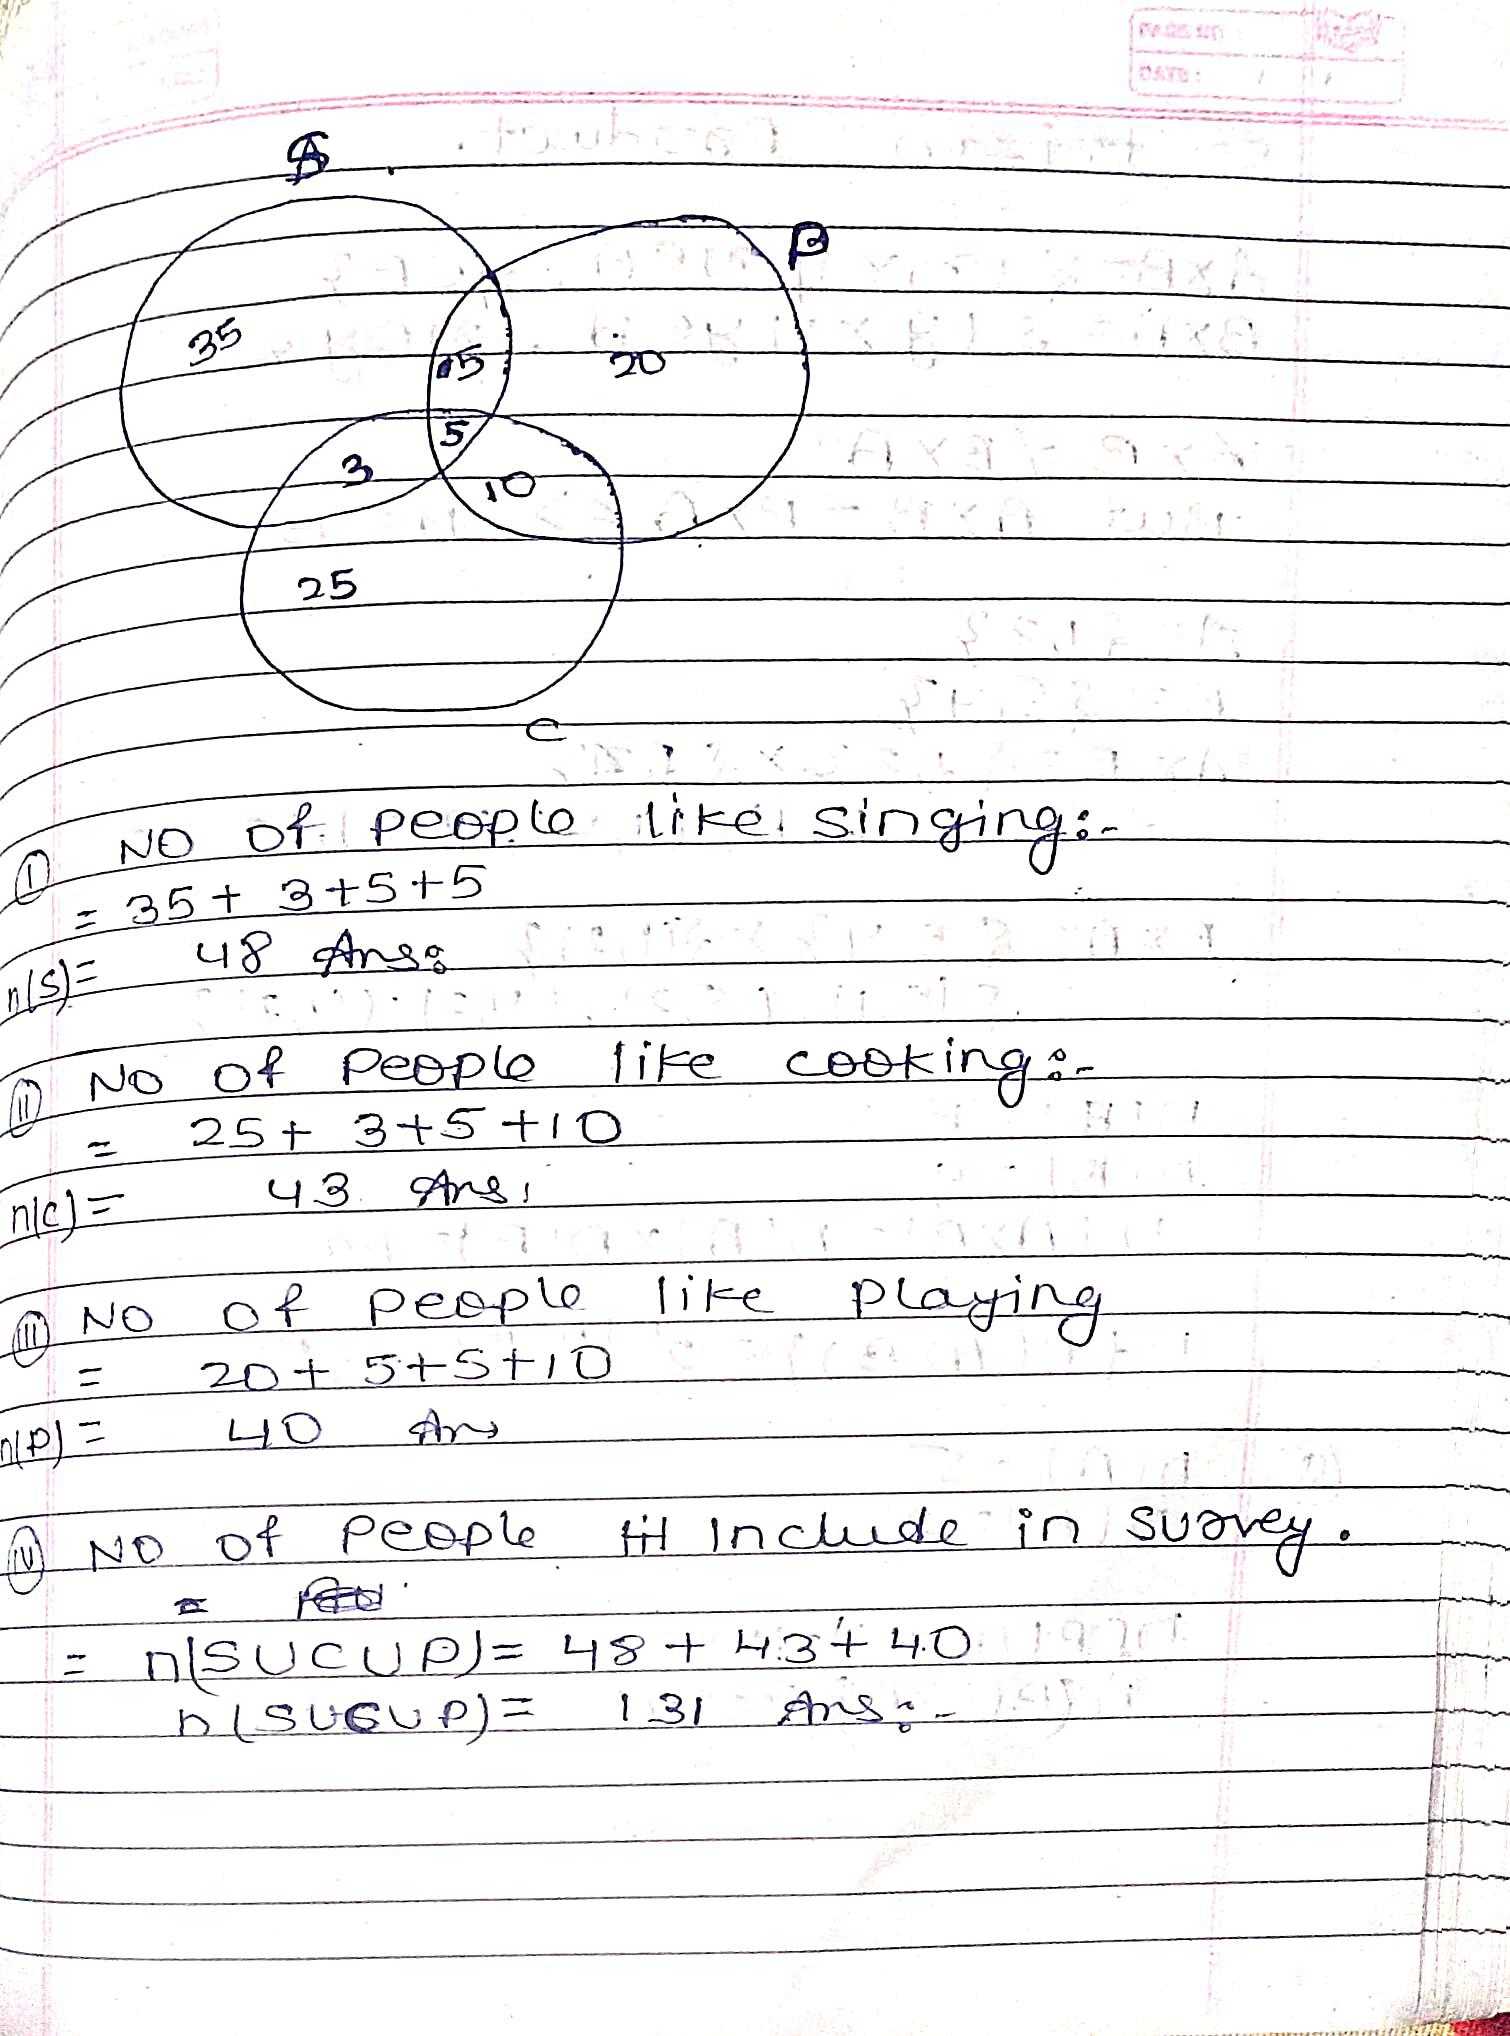 S
P
35
5
20
5
3
10
25
C
(i) NO Of people like singing:-
= 35 + 3+5+5
n(S)= 48 Ans:
(ii) NO Of People like cooking:-
= 25+ 3+5+10
n(c)= 43 Ans:
(iii) NO of people like playing
= 20+ 5+5+10
n(P)= 40 Ans
(iv) NO Of People Include in survey.
=
= n(SUCUP)= 48+ 43+ 40
n(SUCUP)= 131 Ans:-